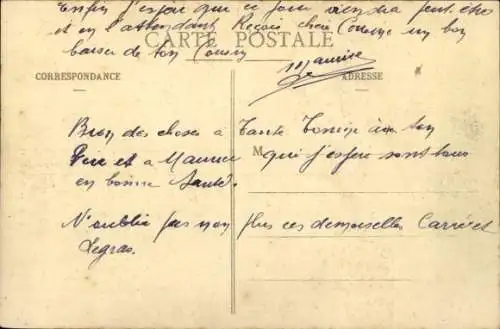 Enfin j'espère que ce jour viendra peut être
et en l'attendant Reçois chère Cousine un bon
CARTE POSTALE
baiser de ton Cousin
Maurice
CORRESPONDANCE
ADRESSE
Bien des choses à Tante Tonine à ton
M
Père et à Maurice qui j'espère sont tous
en bonne Santé.
N'oublie pas non plus ces demoiselles Carré et
Legras.